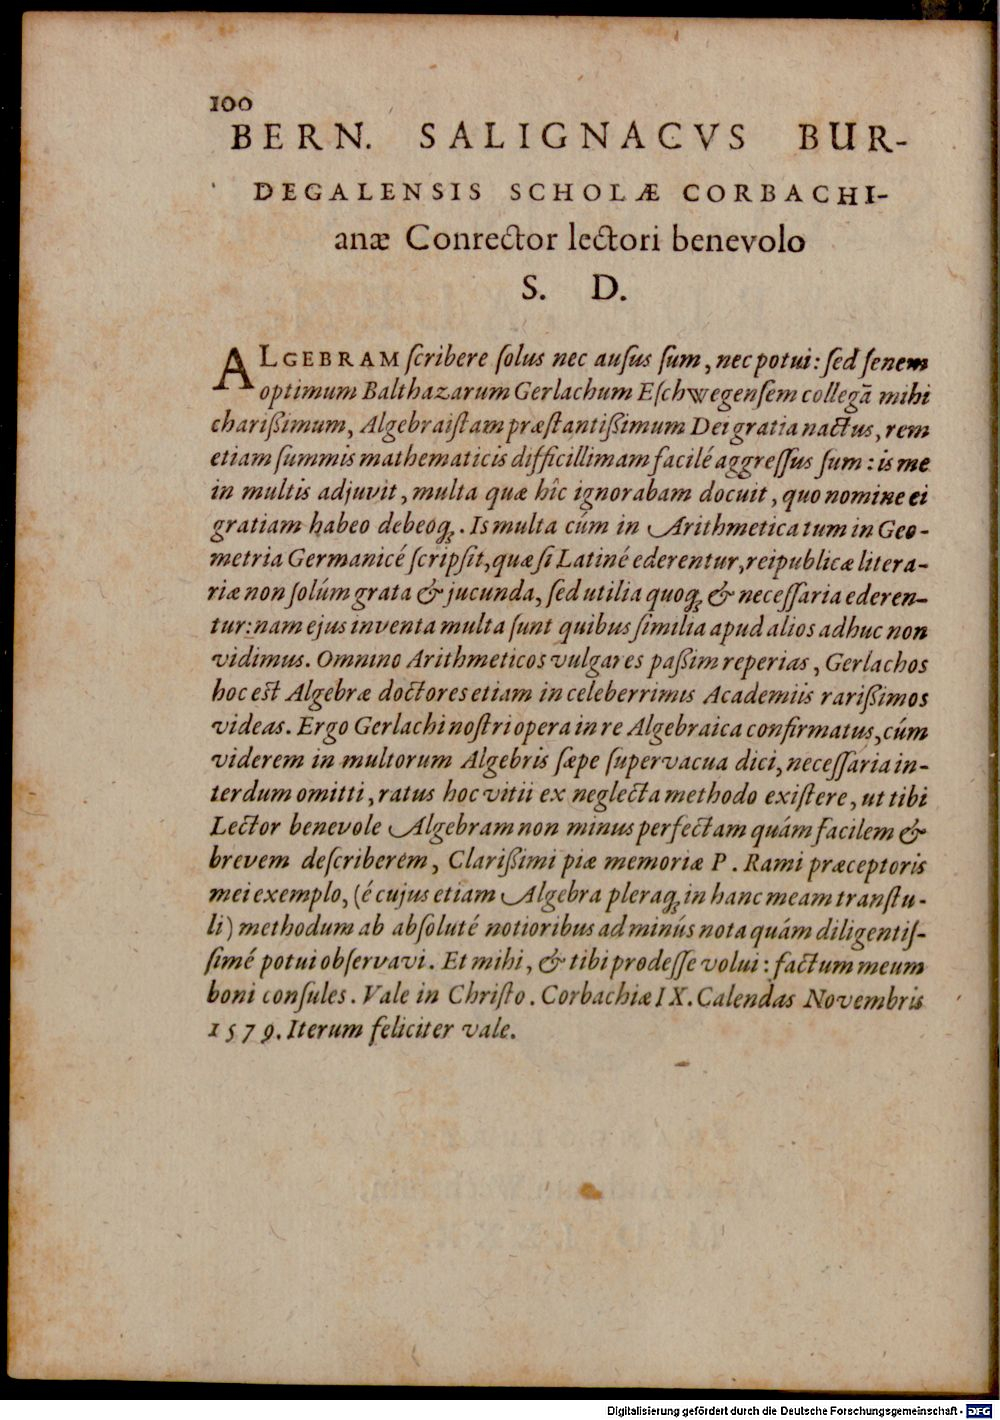 100
BERN. SALIGNACVS BUR-
DEGALENSIS SCHOLÆ CORBACHI-
anæ Conrector lectori benevolo
S. D.
ALGEBRAM ſcribere ſolus nec auſus ſum, nec potui: ſed ſenem
optimum Balthazarum Gerlachum Eſchwegenſem collegã mihi
charißimum, Algebraiſtam præſtantißimum Dei gratia nactus, rem
etiam ſummis mathematicis difficillimam facilé aggreſſus ſum: is me
in multis adjuvit, multa quæ hîc ignorabam docuit, quo nomine ei
gratiam habeo debeoq́;. Is multa cúm in Arithmetica tum in Geo-
metria Germanicé ſcripſit, quæ ſi Latiné ederentur, reipublicæ litera-
riæ non ſolúm grata & jucunda, ſed utilia quoq; & neceſſaria ederen-
tur: nam ejus inventa multa ſunt quibus ſimilia apud alios adhuc non
vidimus. Omnino Arithmeticos vulgares paßim reperias, Gerlachos
hoc est Algebræ doctores etiam in celeberrimis Academiis rarißimos
videas. Ergo Gerlachi noſtri opera in re Algebraica confirmatus, cúm
viderem in multorum Algebris ſæpe ſupervacua dici, neceſſaria in-
terdum omitti, ratus hoc vitii ex neglecta methodo exiſtere, ut tibi
Lector benevole Algebram non minus perfectam quám facilem &
brevem deſcriberem, Clarißimi piæ memoriæ P. Rami præceptoris
mei exemplo, (é cujus etiam Algebra pleraq; in hanc meam tranſtu-
li) methodum ab abſoluté notioribus ad minús nota quám diligentiſ-
ſimé potui obſervavi. Et mihi, & tibi prodeſſe volui: factum meum
boni conſules. Vale in Chriſto. Corbachiæ IX. Calendas Novembris
1579. Iterum feliciter vale.
Digitalisierung gefördert durch die Deutsche Forschungsgemeinschaft - DFG